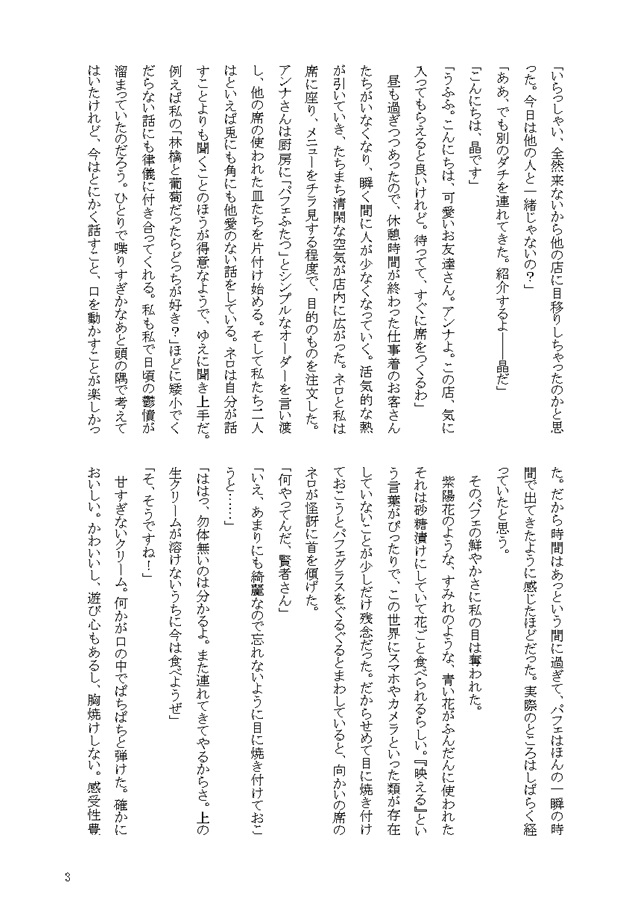 「いらっしゃい、全然来ないから他の店に目移りしちゃったのかと思
った。今日は他の人と一緒じゃないの？」
「ああ、でも別のダチを連れてきた。紹介するよ――晶だ」
「こんにちは、晶です」
「うふふ。こんにちは、可愛いお友達さん。アンナよ。この店、気に
入ってもらえると良いけれど。待ってて、すぐに席をつくるわ」
　昼も過ぎつつあったので、休憩時間が終わった仕事着のお客さん
たちがいなくなり、瞬く間に人が少なくなっていく。活気的な熱
が引いていき、たちまち清閑な空気が店内に広がった。ネロと私は
席に座り、メニューをチラ見する程度で、目的のものを注文した。
アンナさんは厨房に「パフェふたつ」とシンプルなオーダーを言い渡
し、他の席の使われた皿たちを片付け始める。そして私たち二人
はといえば兎にも角にも他愛のない話をしている。ネロは自分が話
すことよりも聞くことのほうが得意なようで、ゆえに聞き上手だ。
例えば私の「林檎と葡萄だったらどっちが好き？」ほどに矮小でく
だらない話にも律儀に付き合ってくれる。私も私で日頃の鬱憤が
溜まっていたのだろう。ひとりで喋りすぎかなあと頭の隅で考えて
はいたけれど、今はとにかく話すこと、口を動かすことが楽しかっ
た。だから時間はあっという間に過ぎて、パフェはほんの一瞬の時
間で出てきたように感じたほどだった。実際のところはしばらく経
っていたと思う。
　そのパフェの鮮やかさに私の目は奪われた。
　紫陽花のような、すみれのような、青い花がふんだんに使われた
それは砂糖漬けにしていて花ごと食べられるらしい。『映える』とい
う言葉がぴったりで、この世界にスマホやカメラといった類が存在
していないことが少しだけ残念だった。だからせめて目に焼き付け
ておこうとパフェグラスをぐるぐるとまわしていると、向かいの席の
ネロが怪訝に首を傾げた。
「何やってんだ、賢者さん」
「いえ、あまりにも綺麗なので忘れないように目に焼き付けておこ
うと……」
「ははっ、勿体無いのは分かるよ。また連れてきてやるからさ。上の
生クリームが溶けないうちに今は食べようぜ」
「そ、そうですね！」
　甘すぎないクリーム。何かが口の中でぱちぱちと弾けた。確かに
おいしい。かわいいし、遊び心もあるし、胸焼けしない。感受性豊
3